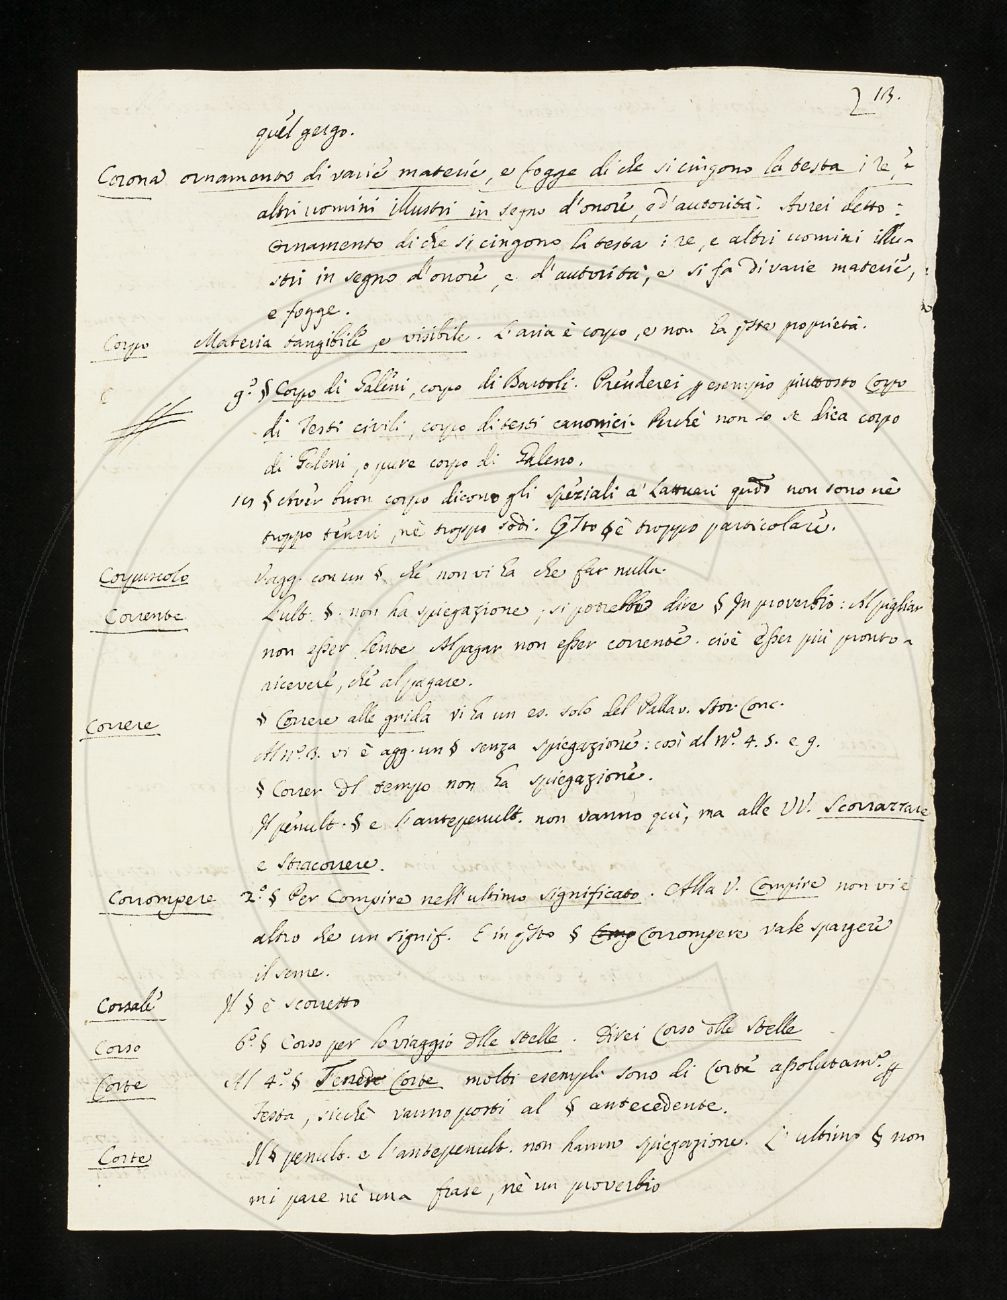 13.
quel gergo.
Corona ornamento di varie materie, e fogge di che si cingono la testa i re, e
altri uomini illustri in segno d'onore, e d'autorità. Avrei detto:
ornamento di che si cingono la testa i re, e altri uomini illu-
stri in segno d'onore, e d'autorità, e si fa di varie materie,
e fogge.
Corpo Materia tangibile, e visibile. L'aria è corpo, e non ha qste proprietà.
9.° § Corpo di Galeni, corpo di Bartoli. Prenderei p esempio piuttosto Corpo
di Testi civili, corpo di testi canonici. Perchè non so se dica corpo
di Galeni, o pure corpo di Galeno.
§ Aver buon corpo dicono gli speziali a' Lattuari qndo non sono nè
troppo teneri, nè troppo sodi. Qsto § è troppo particolare.
Corpuscolo S'agg. con un §. che non vi ha che far nulla.
Corrente L'ult. §. non ha spiegazione, si potrebbe dire § In proverbio: Al pigliar
non esser lente Al pagar non esser corrente. cioè esser più pronto a
ricevere, che al pagare.
Correre § Correre alle grida vi ha un es. solo del Pallav. Stor. Conc.
Al n.° 3. vi è agg. un § senza spiegazione: così al n.° 4. 5. e 9.
§ Correr dl tempo non ha spiegazione.
Il penult. § e l'antepenult. non vanno quì, ma alle VV. Scorrazzare
e Stracorrere.
Corrompere 2.° § Per Compire nell'ultimo significato. Alla V. Compire non vi è
altro che un signif. E in qsto § Corrompere vale spargere
il seme.
Corsale Il § è scorretto
Corso 6.° § Corso per lo viaggio dlle stelle. Direi Corso dlle stelle
Corte Al 4.° § Tener Corte molti esempli sono di Corte assolutam.e
Testa, sicchè vanno posti al § antecedente.
Corte Il § penult. e l'antepenult. non hanno spiegazione. L'ultimo § non
mi pare nè una frase, nè un proverbio